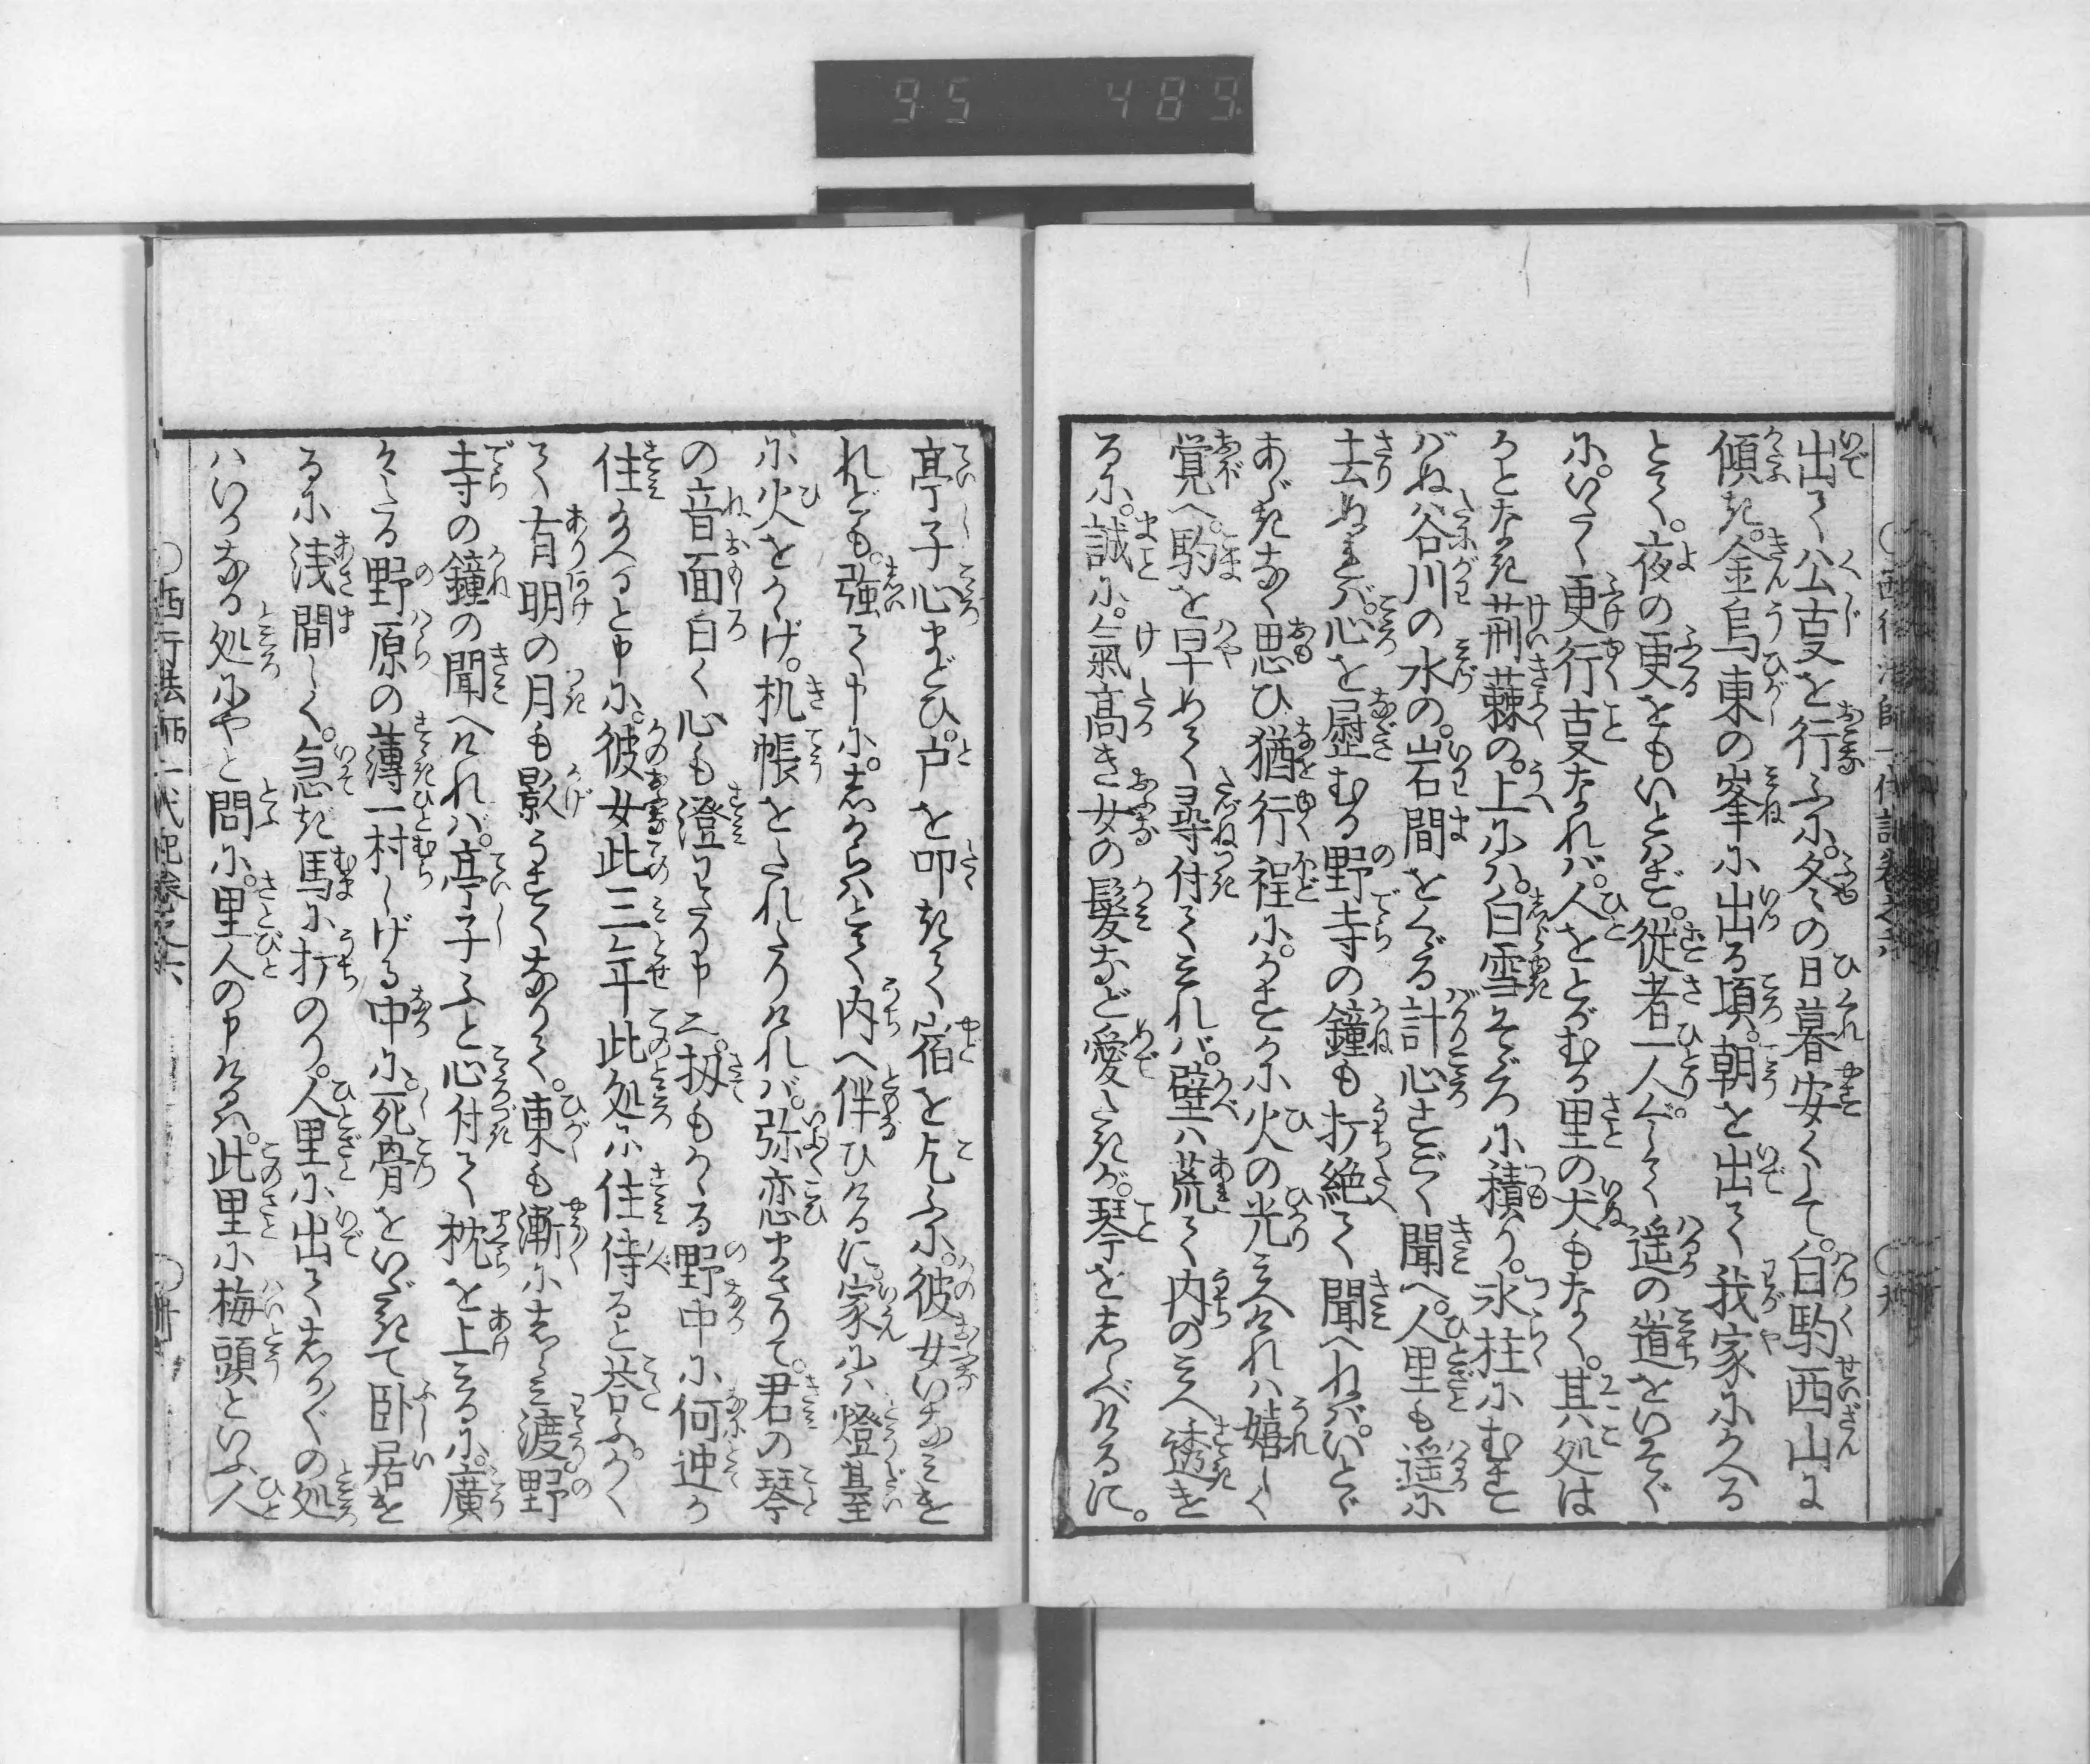 95 489
西行法師一代記巻之六
出て公叓を行ふに。冬の日暮安くして。白駒西山に
傾き。金烏東の峯に出る頃。朝を出て我家にかへる
とて。夜の更をもいとはず。従者一人ぐして遥の道をいそぐ
に。いたく更行叓なれば。人をとがむる里の犬もなく。其処は
かとなき荊蕀の。上には。白雪そゞろに積り。氷柱にむせ
ばぬ谷川の水の。岩間をくゞる計心すごく聞へ。人里も遥に
去ぬれば。心を慰むる野寺の鐘も打絶て聞へねば。いとゞ
あぢきなく思ひ猶行程に。かすかに火の光みへければ嬉しく
覚へ。駒を早めて尋付てみれば。壁は荒て内のみへ透を
るに。誠に。氣高き女の髪など愛たきが。琴をしらべけるに。
亭子心まどひ。戸を叩きて宿を乞ふに。彼女いなみを
れども。強て申に。しからばとて内へ伴ひけるに。家には燈臺
に火をかゝげ。机帳をたれたりければ。弥恋まさりて。君の琴
の音面白く心も澄わたり申。扨もかゝる野中に何迚か
住給ふと申に。彼女此三年此処に住侍ると答ふ。かく
て有明の月も影うすくなりて。東も漸にしらみ渡野
寺の鐘の聞へければ。亭子ふと心付て枕を上みるに。廣
々たる野原の薄一村しげる中に。死骨をいだきて卧居を
るに浅間しく。急ぎ馬に打のり。人里に出てしか〴〵の処
はいかなる処にやと問に。里人の申けるは。此里に梅頭といふ人
西行法師一代記巻之六